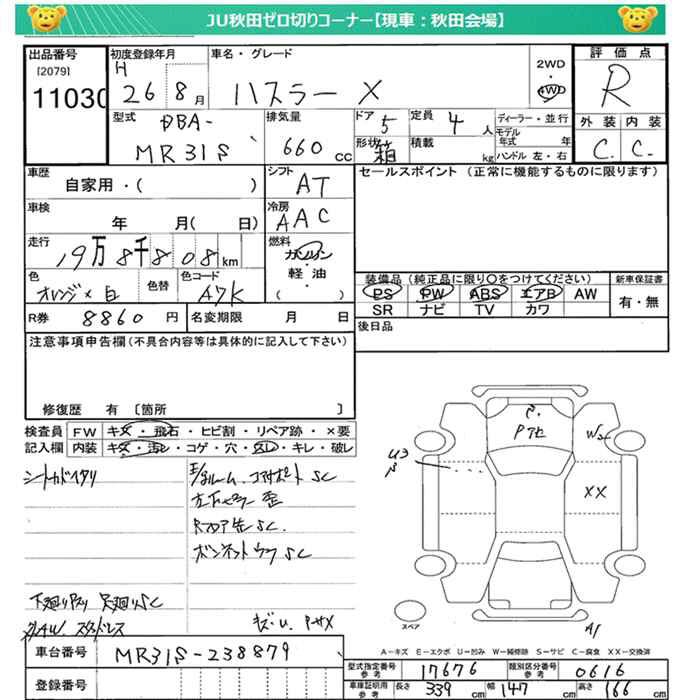 JU秋田ゼロ切りコーナー【現車：秋田会場】
出品番号
[2079]
11030
初度登録年月
H
26 8月
車名・グレード
ハスラー X
2WD
・
4WD
評 価 点
R
型式
DBA-
MR31S
排気量
660 cc
ドア
5
形状
箱
定員
4人
積載
kg
ディーラー・並行
モデル年式 年
ハンドル 左・右
外 装 内 装
C. C.
車歴
自家用・( )
シフト
AT
セールスポイント（正常に機能するものに限ります）
車検
年 月( 日)
冷房
AAC
走行
19万8千808km
燃料
ガソリン
・
軽・油
( )
色
オレンジ×白
色替
色コード
A7K
装備品（純正品に限り○をつけてください）
PS PW ABS エアB AW
SR ナビ TV カワ
新車保証書
有・無
R券 8860 円
名変期限 月 日
後日品
注意事項申告欄(不具合内容等は具体的に記入して下さい)
修復歴 有〔箇所 〕
検査員
記入欄
FW キズ・飛石・ヒビ割・リペア跡・×要
内装 キズ・汚レ・コゲ・穴・スレ・キレ・破レ
コアサポート SC
左下ピラー 歪
Rフロア 缶 SC.
ボンネットウラ SC
下廻りサビ 足廻りSC
スタッドレス
キズ・U.
P セ
W2
U3
XX
A1
スペア
A－キズ E－エクボ U－凹み W－補修跡 S－サビ C－腐食 XX－交換済
車台番号 MR31S-238879
登録番号
型式指定番号
参考
17676
類別区分番号
参考
0616
車庫証明用
参考
長さ 339cm 幅 147cm 高さ 166cm